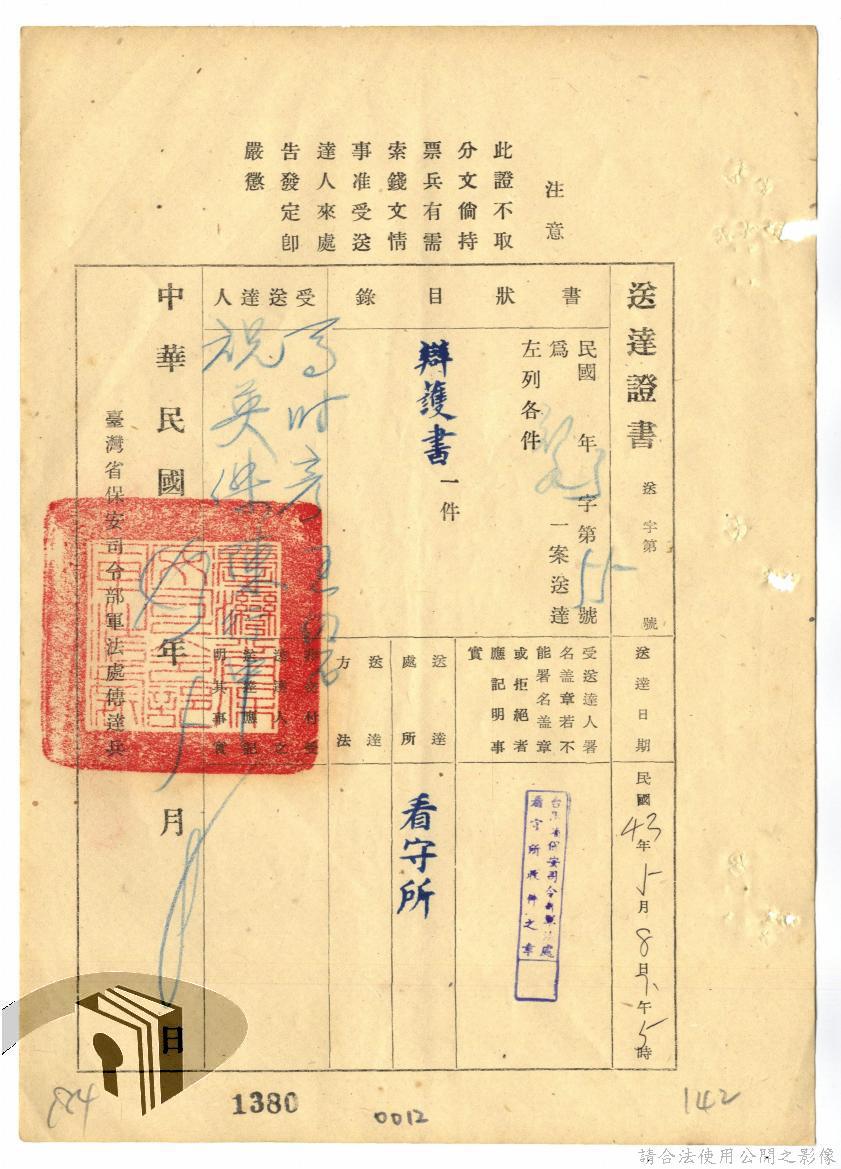 注意
此證不取
分文倘持
票兵有需
索錢文情
事准受送
達人來處
告發定卽
嚴懲
送達證書
送 字第 號
送達日期
民國43年5月8日下午5時
書狀目錄
民國 年 字第55號
爲 一案送達
左列各件
辯護書一件
受送達人署
名盖章若不
能署名盖章
或拒絕者
應記明事
實
台灣省保安司令部軍法處
看守所收件之章
送達處所
看守所
送達方法
受送達人
馬時彥
祝英傑
送達人之
送達應記
明其事實
中華民國 年5月 日
臺灣省保安司令部軍法處傳達兵
1380
0012
142
請合法使用公開之影像